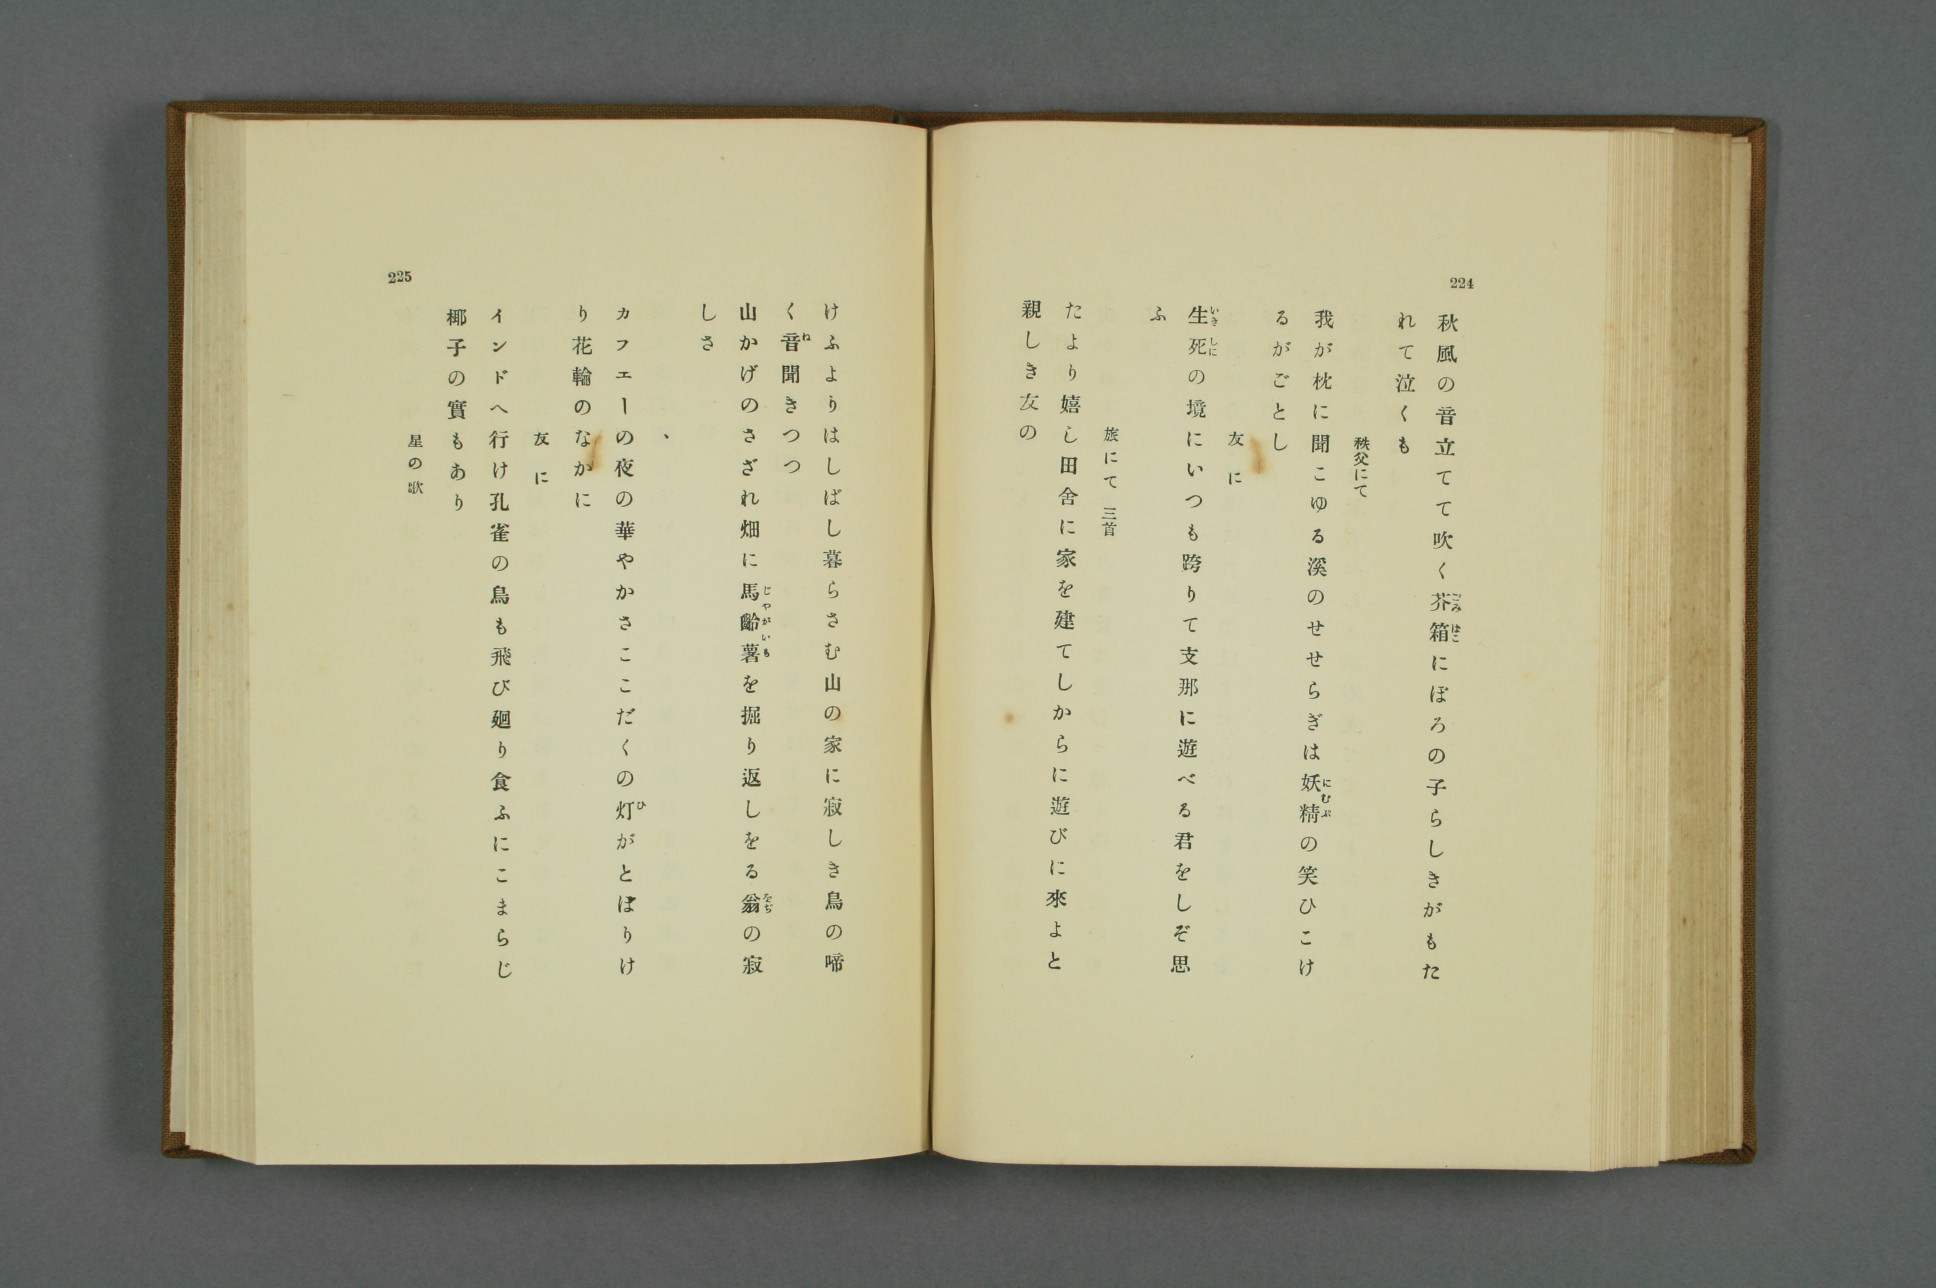 224
秋風の音立てて吹く芥箱にぼろの子らしきがもた
れて泣くも
秩父にて
我が枕に聞こゆる溪のせせらぎは妖精の笑ひこけ
るがごとし
友に
生死の境にいつも跨りて支那に遊べる君をしぞ思
ふ
旅にて 三首
たより嬉し田舍に家を建てしからに遊びに來よと
親しき友の
225
けふよりはしばし暮らさむ山の家に寂しき鳥の啼
く音聞きつつ
山かげのさざれ畑に馬齡薯を掘り返しをる翁の寂
しさ
、
カフエーの夜の華やかさここだくの灯がとぼりけ
り花輪のなかに
友に
インドへ行け孔雀の鳥も飛び廻り食ふにこまらじ
椰子の實もあり
星の歌